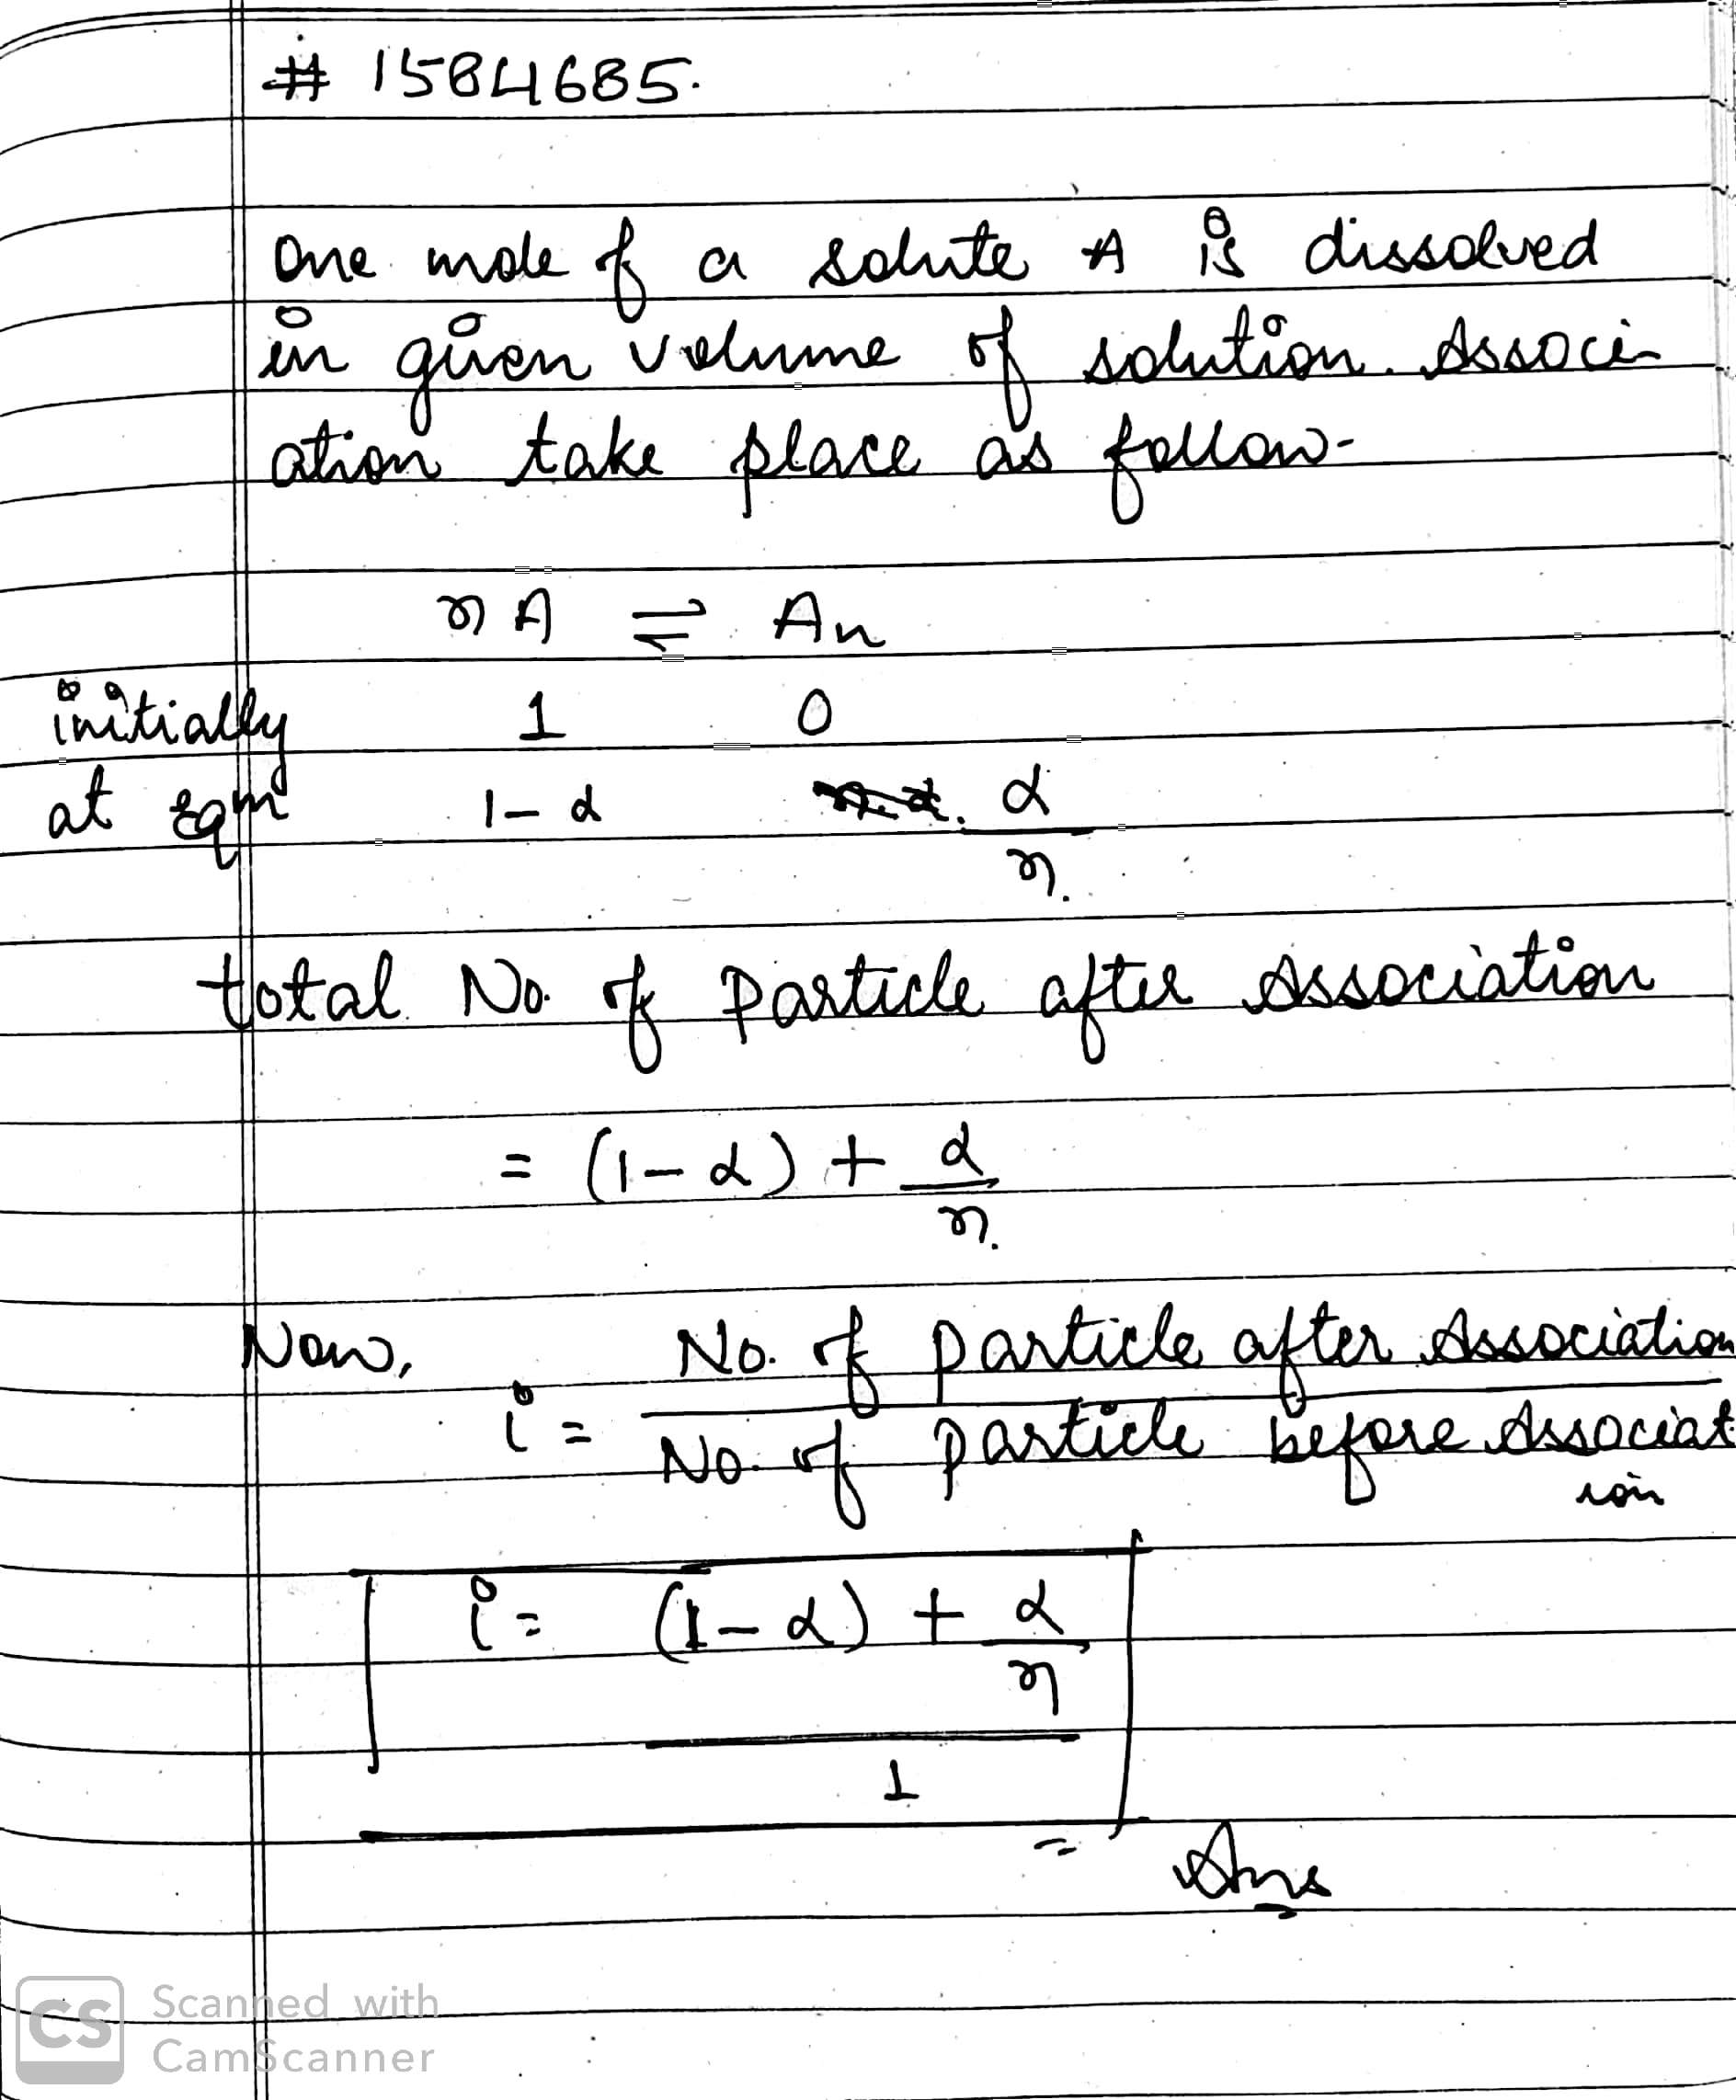 # 1584685.
One mole of a solute A is dissolved
in given volume of solution. Associ-
ation take place as follow-
nA ⇌ An
initially 1 0
at eqm 1-α α/n.
total No. of Particle after Association
= (1-α) + α/n.
Now,
i = No. of particle after Association / No. of particle before Association
i = (1-α) + α/n / 1
= Ans
CS Scanned with
CamScanner